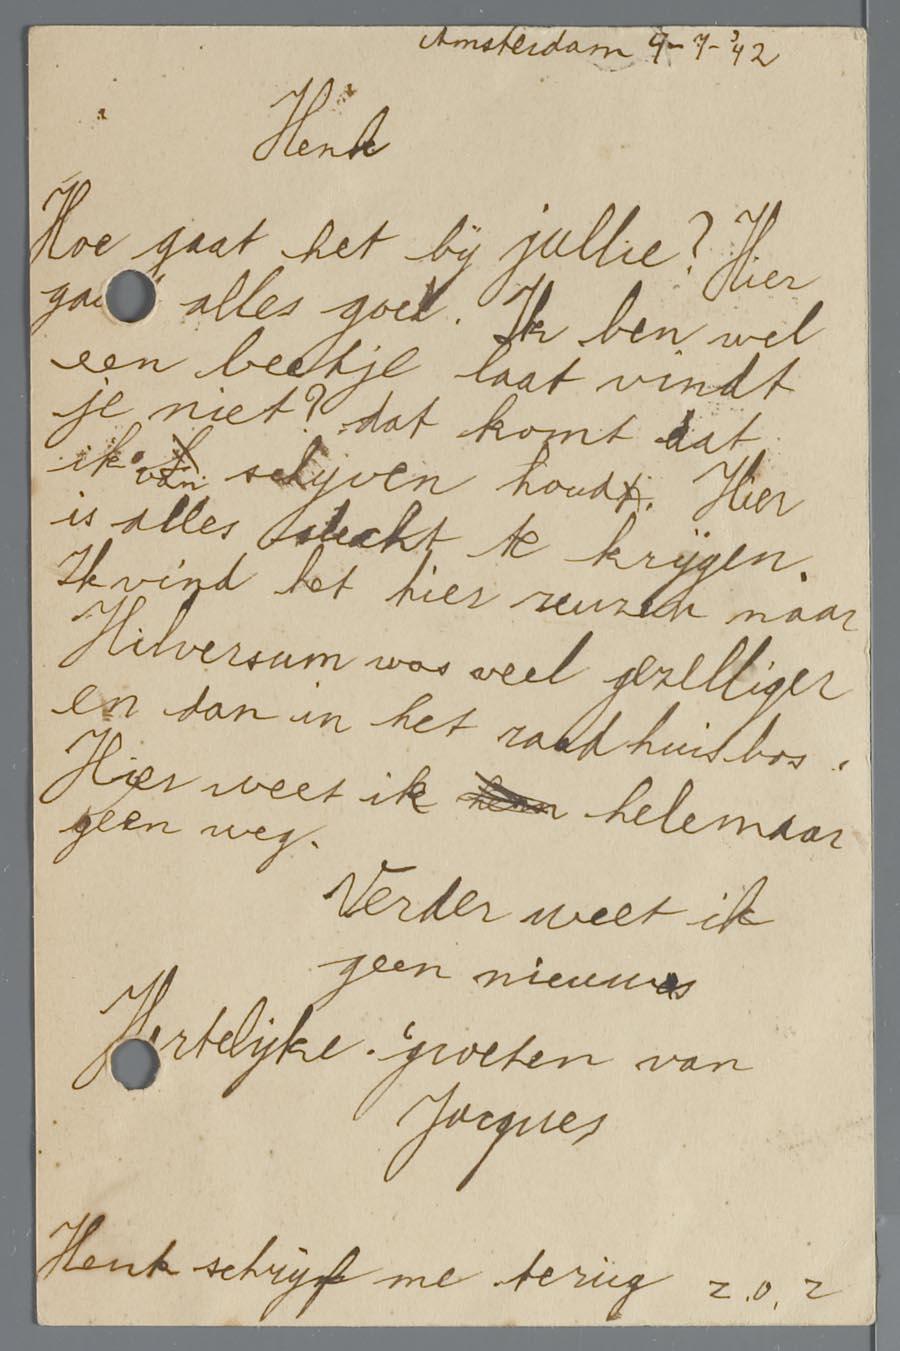 Amsterdam 9-7-'42
Henk
Hoe gaat het bij jullie? Hier
gaat alles goed. Ik ben wel
een beetje laat vindt
je niet? dat komt dat
ik van schijven houdt. Hier
is alles slecht te krijgen.
Ik vind het hier reuzen naar
Hilversum was veel gezelliger
en dan in het raadhuisbos.
Hier weet ik helemaar
geen weg.
Verder weet ik
geen nieuws
Hertelijke groeten van
Jacques
Henk schrijf me terug z.o.z